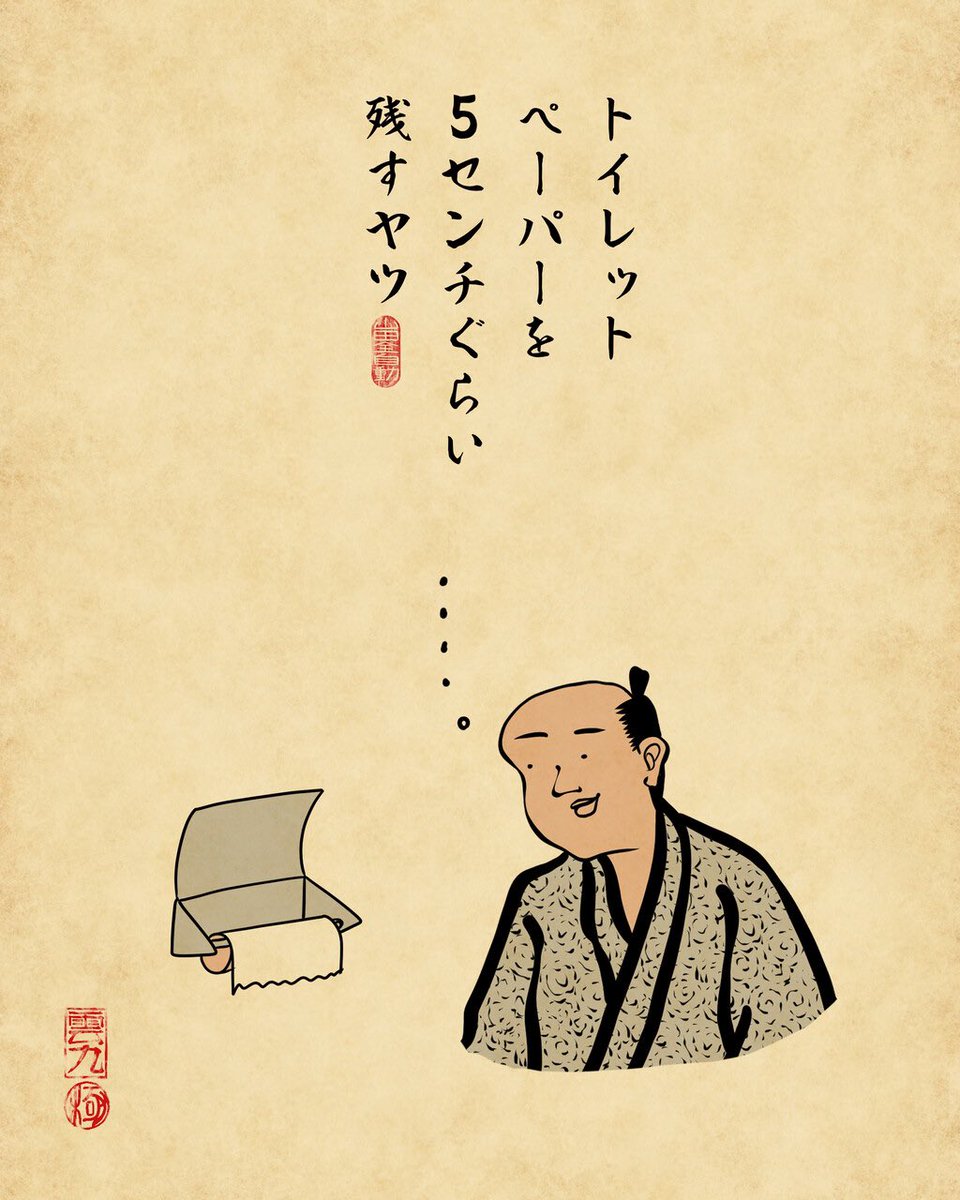 トイレット
ペーパーを
5センチぐらい
残すヤツ
・・・・。